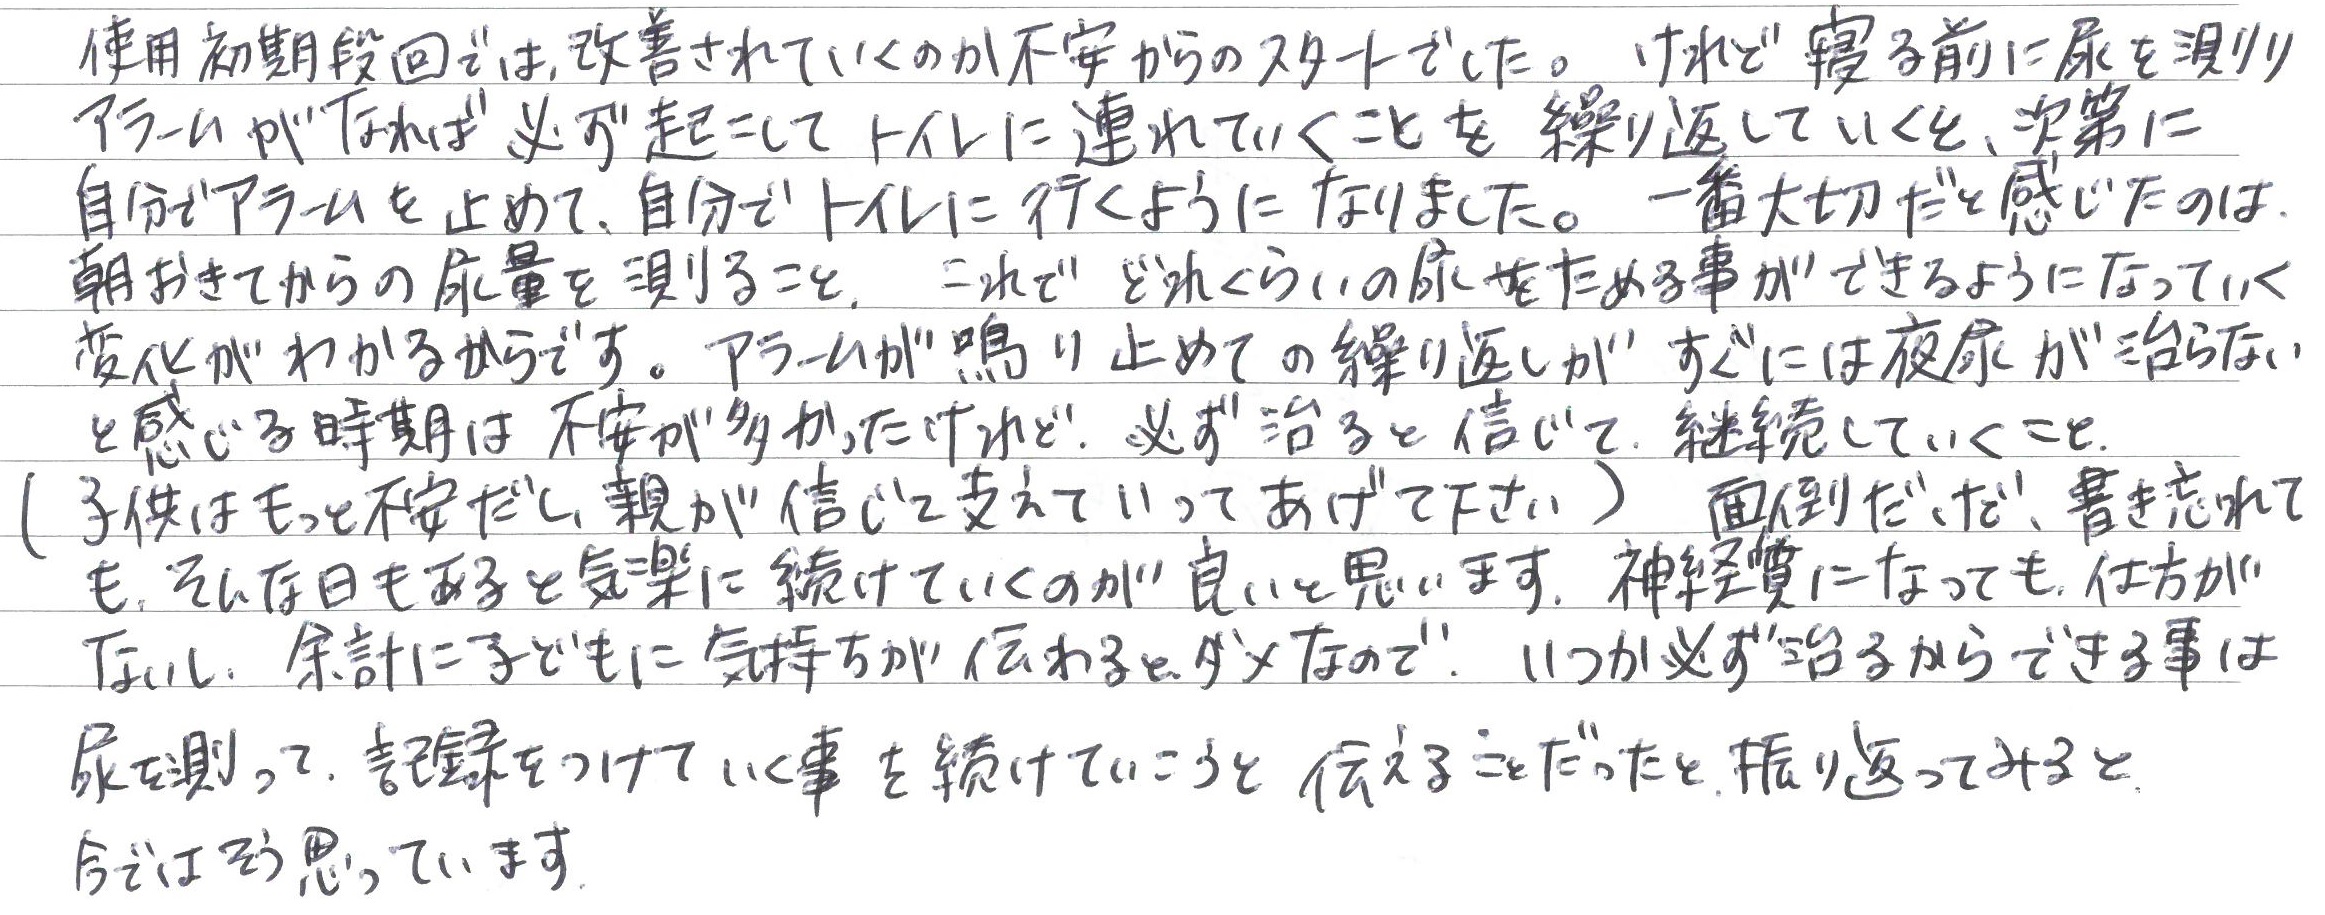 使用初期段回では、改善されていくのか不安からのスタートでした。けれど寝る前に尿を測り
アラームがなれば必ず起こしてトイレに連れていくことを繰り返していくと、次第に
自分でアラームを止めて、自分でトイレに行くようになりました。一番大切だと感じたのは、
朝おきてからの尿量を測ること、これでどれくらいの尿をためる事ができるようになっていく
変化がわかるからです。アラームが鳴り止めての繰り返しがすぐには夜尿が治らない
と感じる時期は不安が多かったけれど、必ず治ると信じて、継続していくこと、
(子供はもっと不安だし、親が信じて支えていってあげて下さい) 面倒だけど、書き忘れて
も、そんな日もあると気楽に続けていくのが良いと思います。神経質になっても、仕方が
ないし、余計に子どもに気持ちが伝わると、ダメなので、いつか必ず治るからできる事は
尿を測って、記録をつけていく事を続けていこうと伝えることだったと、振り返ってみると、
今ではそう思っています。